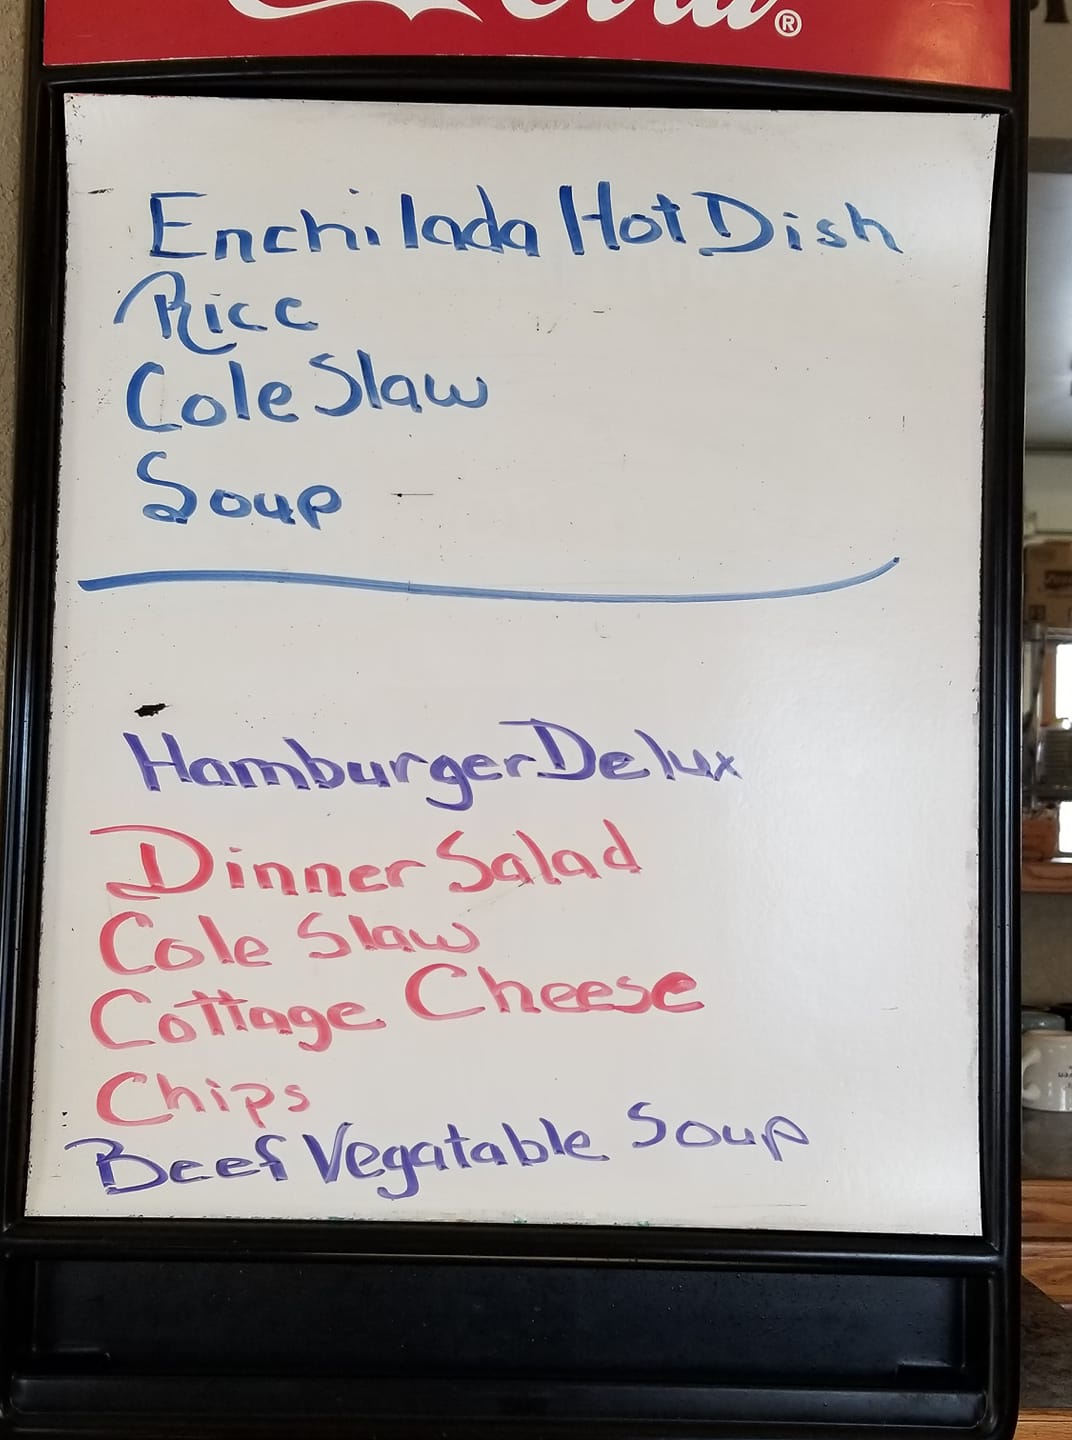 Cola®
Enchilada Hot Dish
Rice
Cole Slaw
Soup
Hamburger Delux
Dinner Salad
Cole Slaw
Cottage Cheese
Chips
Beef Vegatable Soup